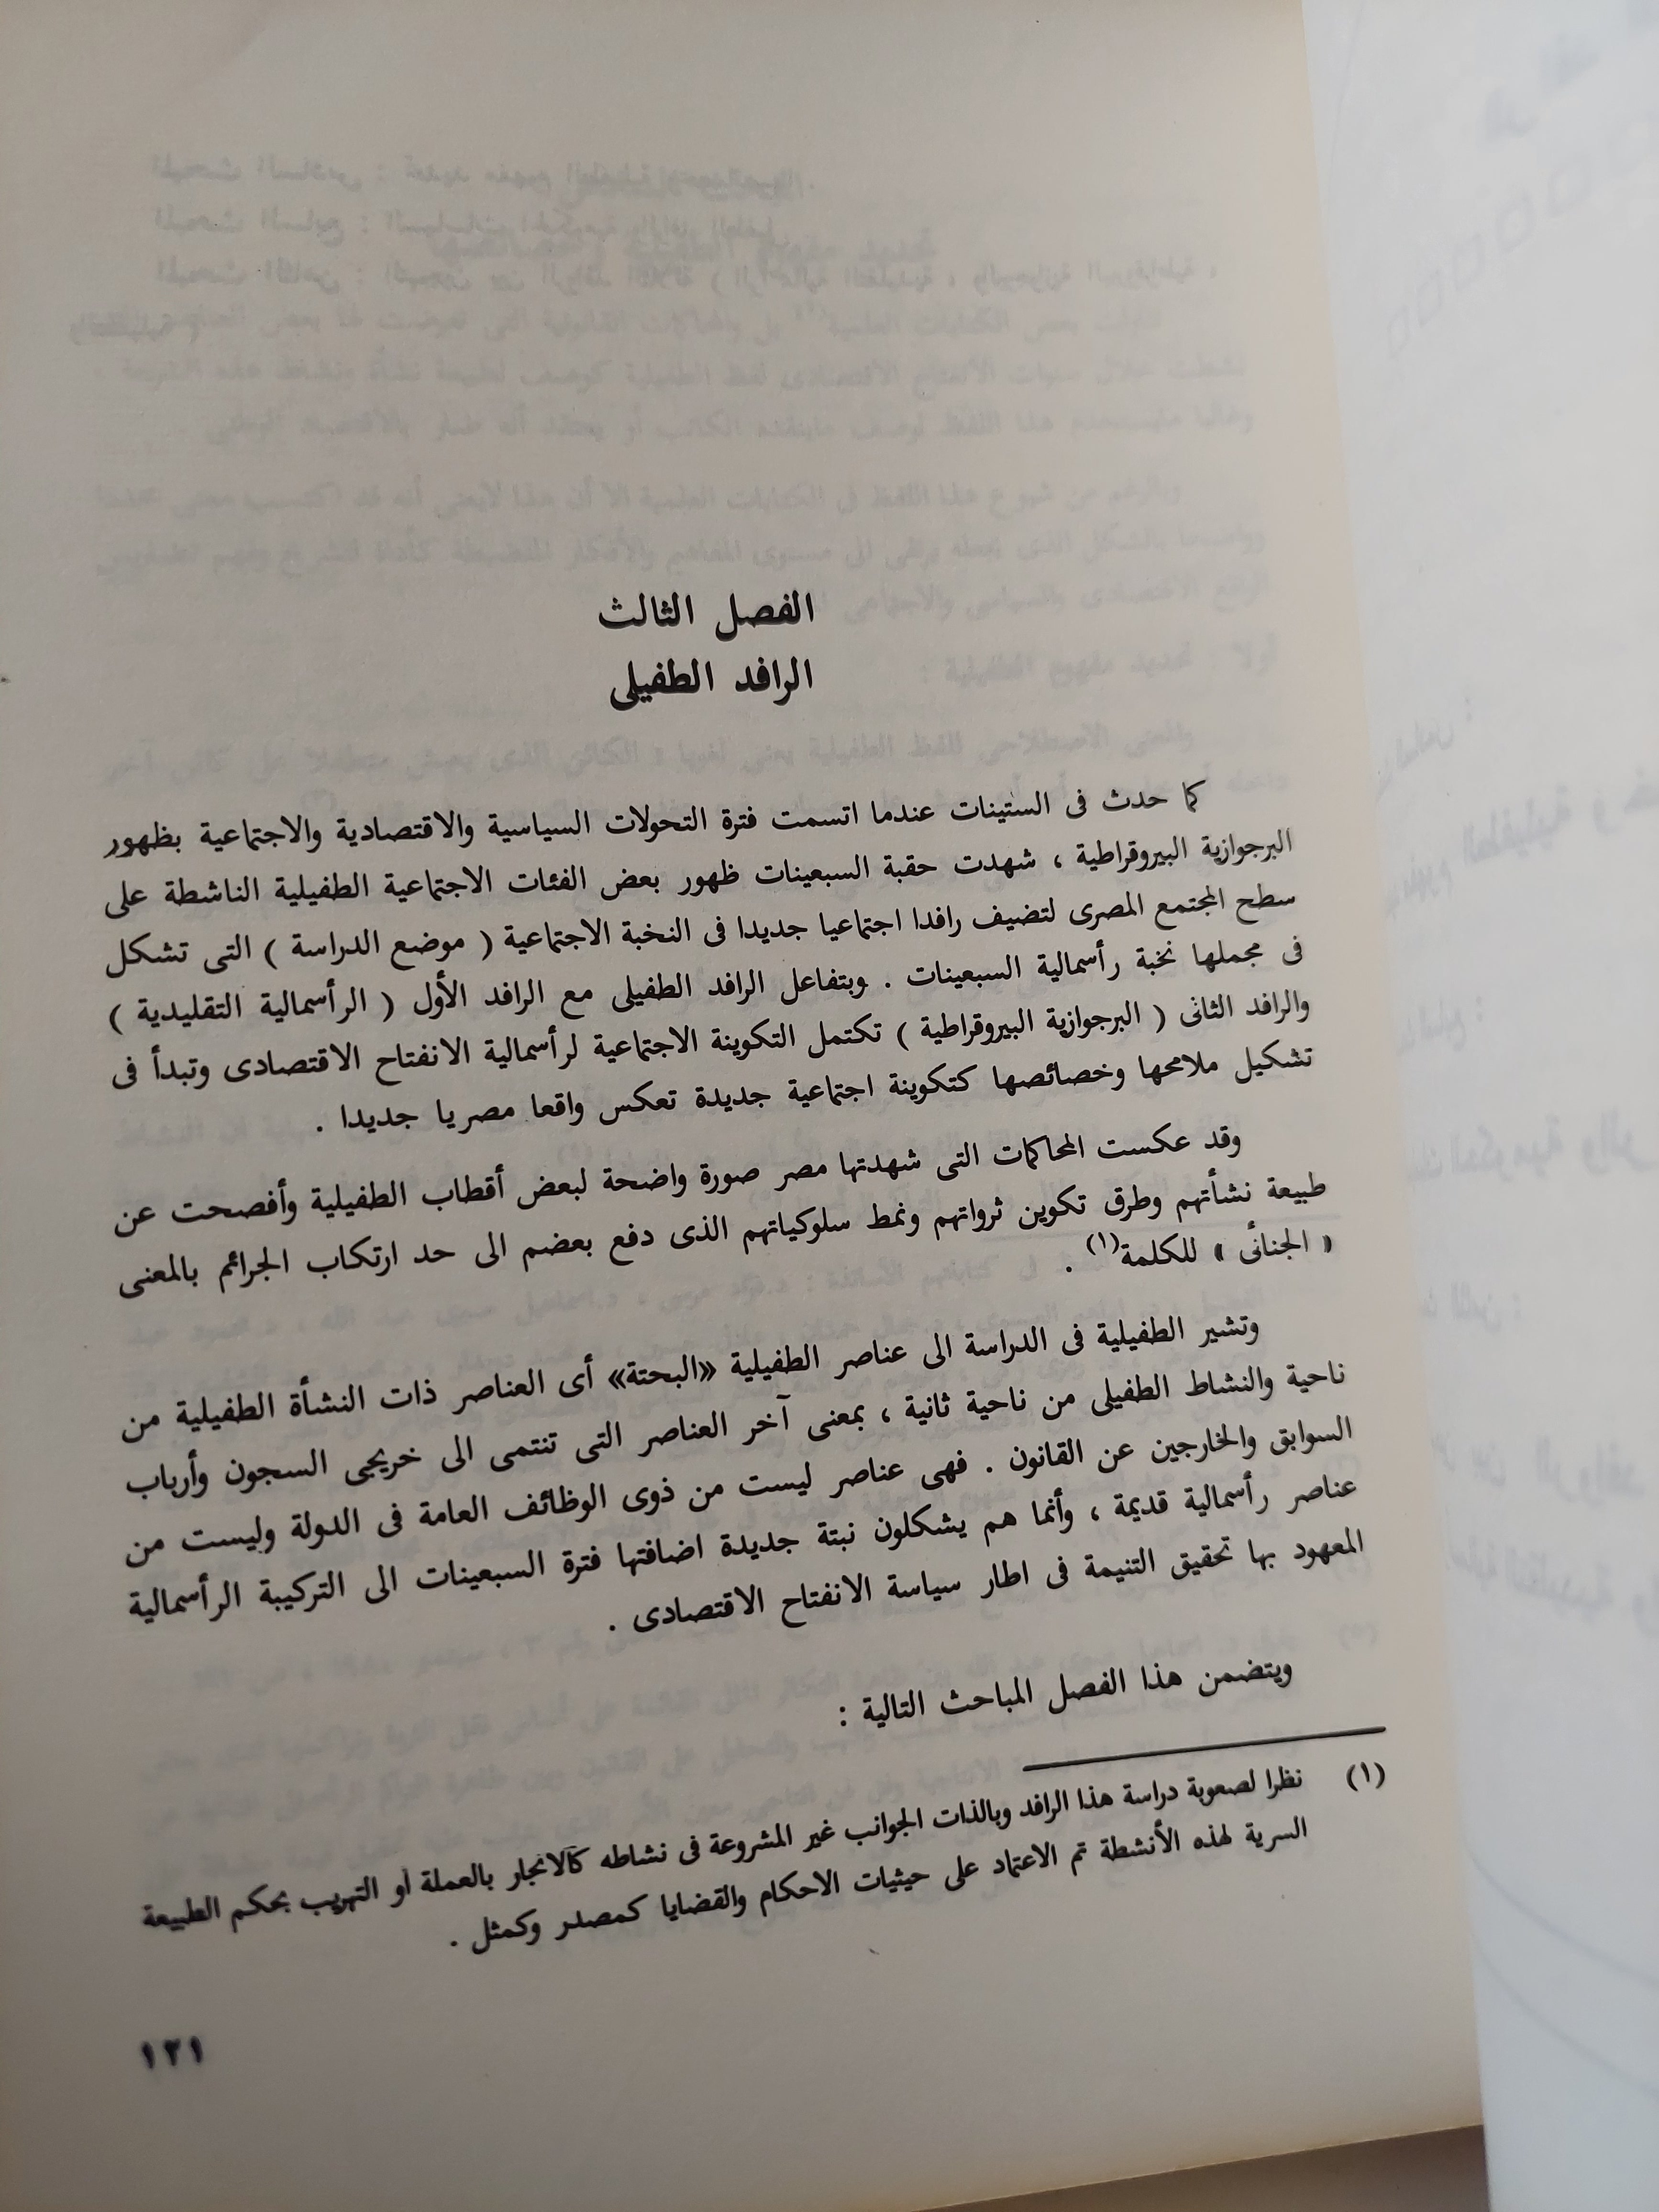 الفصل الثالث
الرافد الطفيلى
كما حدث فى الستينات عندما اتسمت فترة التحولات السياسية والاقتصادية والاجتماعية بظهور
البرجوازية البيروقراطية ، شهدت حقبة السبعينات ظهور بعض الفئات الاجتماعية الطفيلية الناشطة على
سطح المجتمع المصرى لتضيف رافدا اجتماعيا جديدا فى النخبة الاجتماعية ( موضع الدراسة ) التى تشكل
فى مجملها نخبة رأسمالية السبعينات . وبتفاعل الرافد الطفيلى مع الرافد الأول ( الرأسمالية التقليدية )
والرافد الثانى ( البرجوازية البيروقراطية ) تكتمل التكوينة الاجتماعية لرأسمالية الانفتاح الاقتصادى وتبدأ فى
تشكيل ملامحها وخصائصها كتكوينة اجتماعية جديدة تعكس واقعا مصريا جديدا .
وقد عكست المحاكمات التى شهدتها مصر صورة واضحة لبعض أقطاب الطفيلية وأفصحت عن
طبيعة نشأتهم وطرق تكوين ثرواتهم ونمط سلوكياتهم الذى دفع بعضم الى حد ارتكاب الجرائم بالمعنى
« الجنائى » للكلمة(١) .
وتشير الطفيلية فى الدراسة الى عناصر الطفيلية «البحتة» أى العناصر ذات النشأة الطفيلية من
ناحية والنشاط الطفيلى من ناحية ثانية ، بمعنى آخر العناصر التى تنتمى الى خريجى السجون وأرباب
السوابق والخارجين عن القانون . فهى عناصر ليست من ذوى الوظائف العامة فى الدولة وليست من
عناصر رأسمالية قديمة ، وأنما هم يشكلون نبتة جديدة اضافتها فترة السبعينات الى التركيبة الرأسمالية
المعهود بها تحقيق التنيمة فى اطار سياسة الانفتاح الاقتصادى .
ويتضمن هذا الفصل المباحث التالية :
(١) نظرا لصعوبة دراسة هذا الرافد وبالذات الجوانب غير المشروعة فى نشاطه كالاتجار بالعملة أو التهريب بحكم الطبيعة
السرية لهذه الأنشطة تم الاعتماد على حيثيات الاحكام والقضايا كمصدر وكمثل .
١٢١